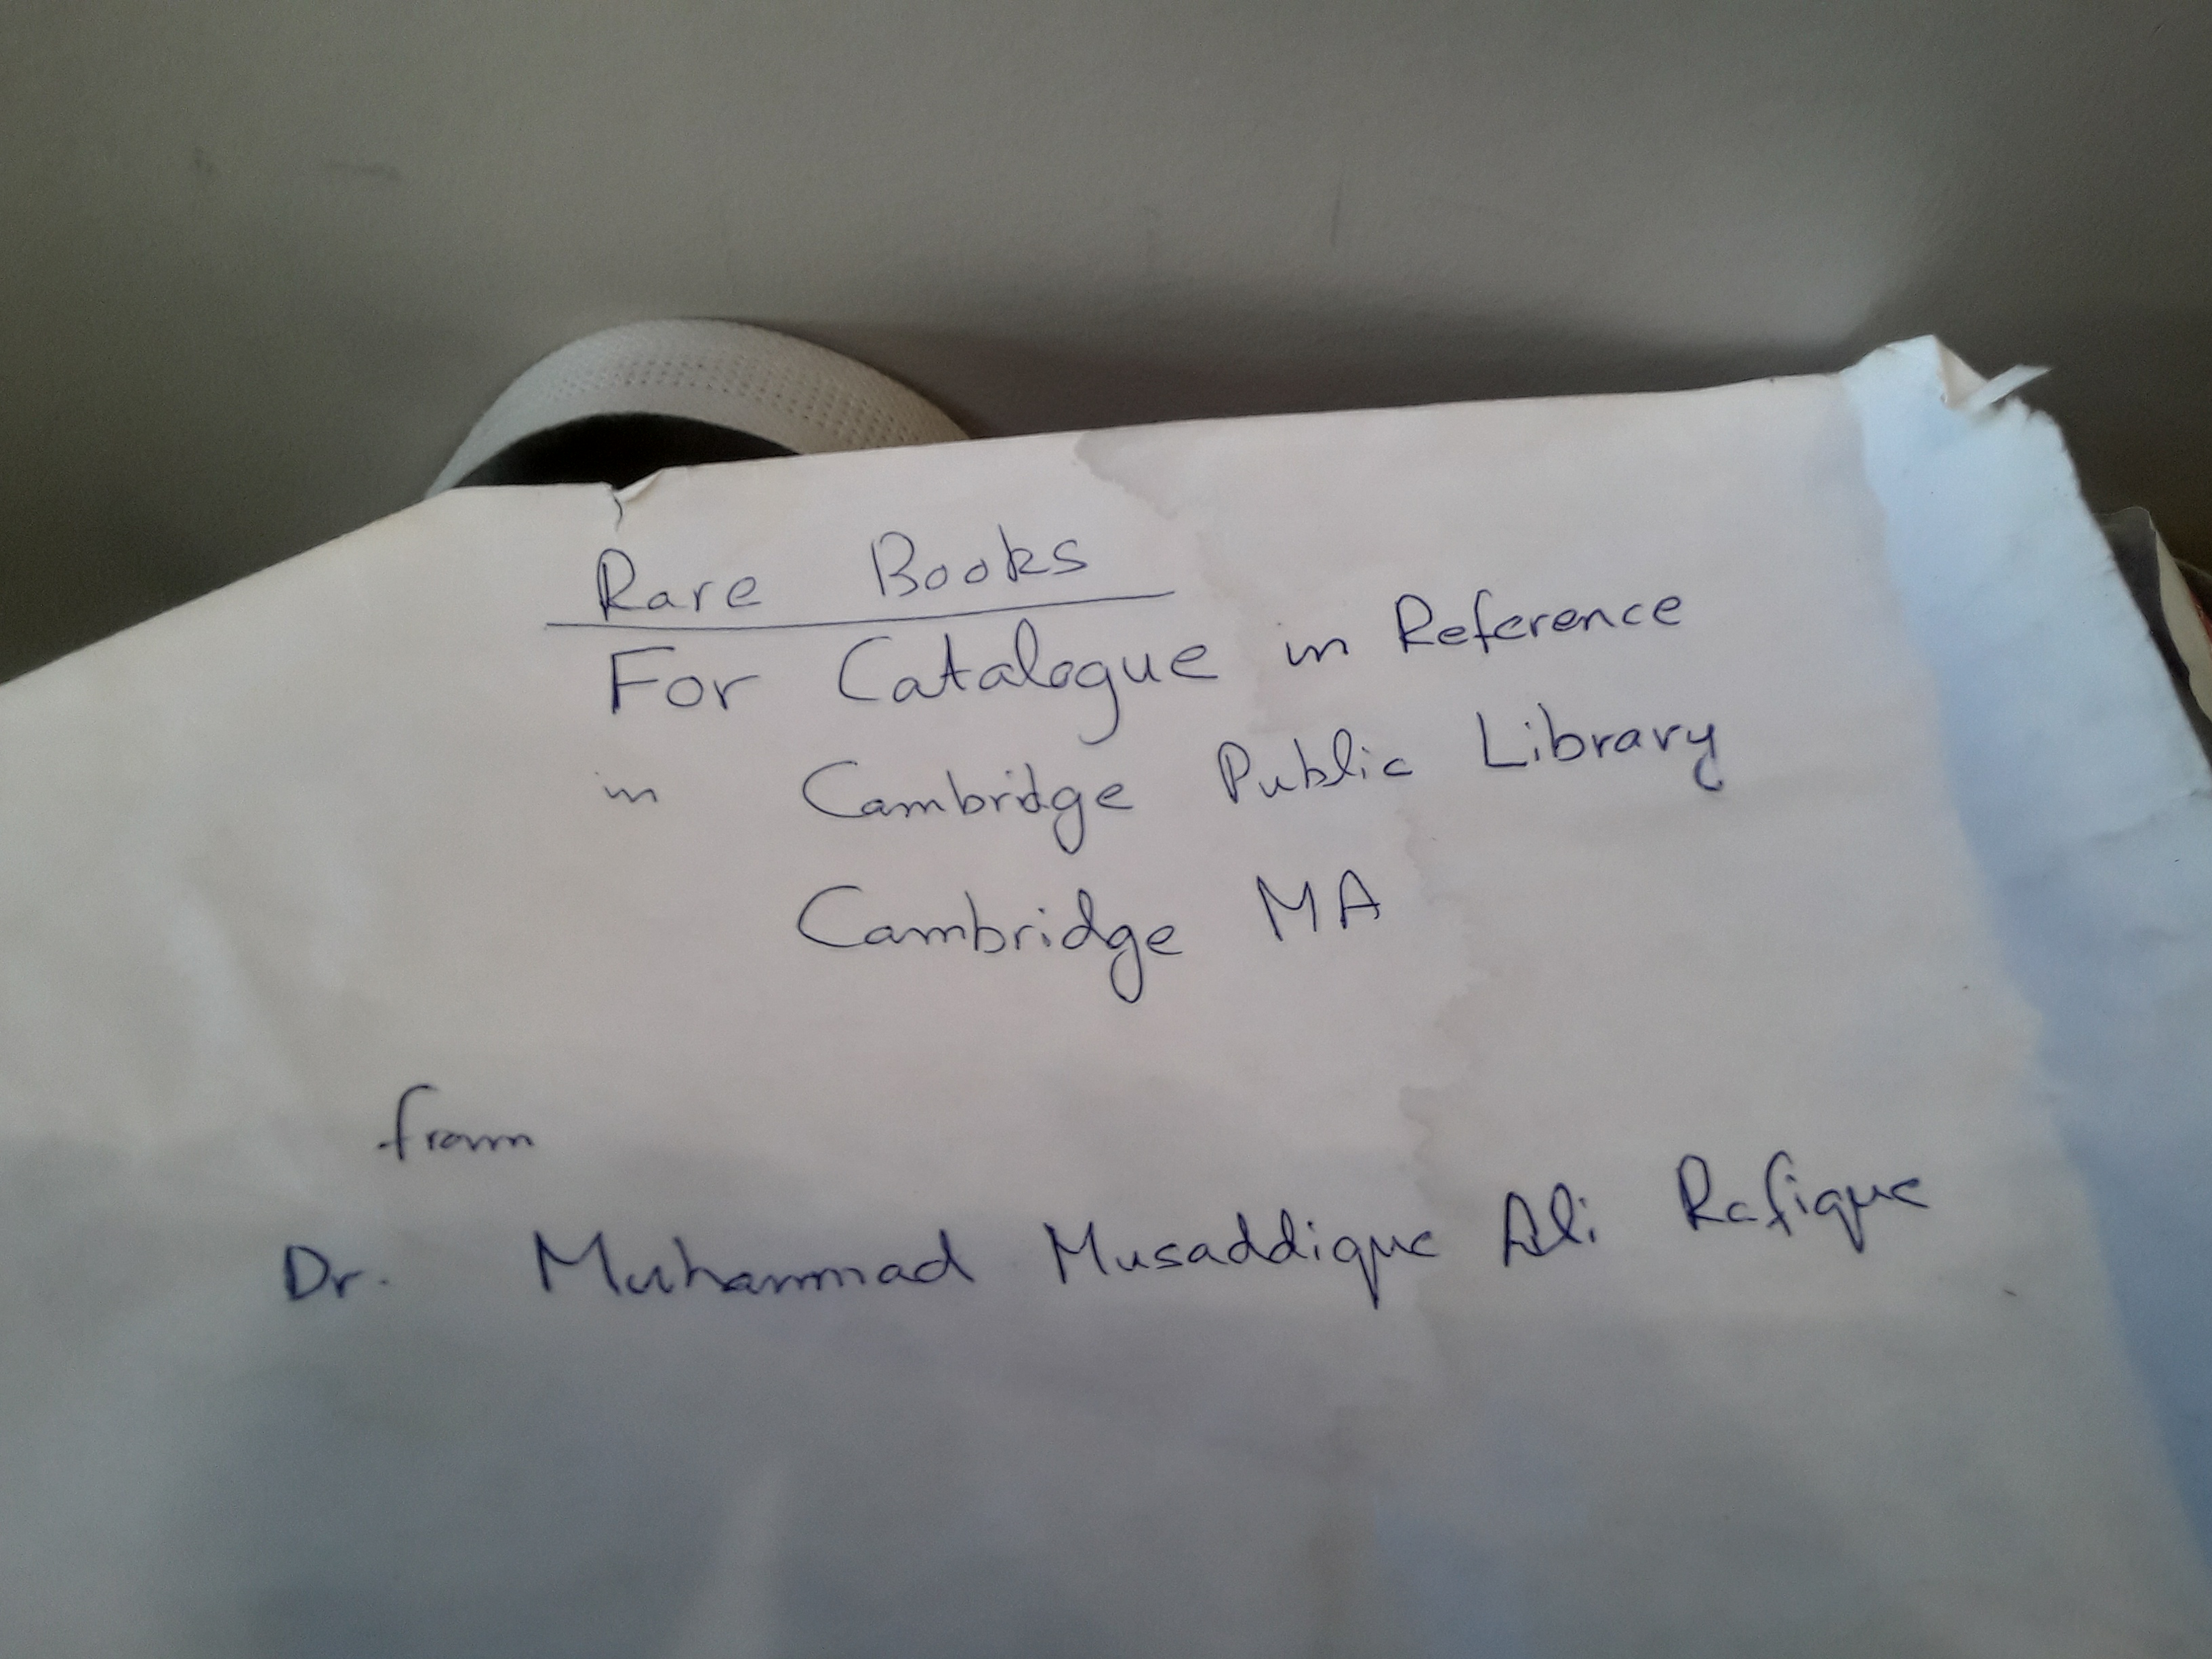 Rare Books
For Catalogue in Reference
in Cambridge Public Library
Cambridge MA
from
Dr. Muhammad Musaddique Ali Rafique